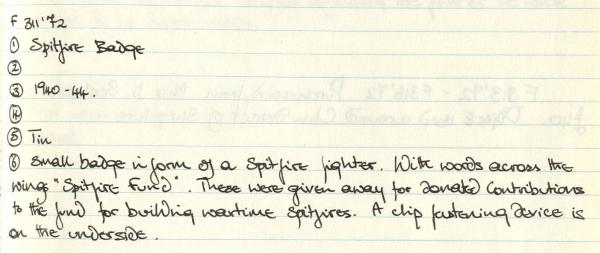 F 311'72
① Spitfire Badge
②
③ 1940-44.
④
⑤ Tin
⑥ Small badge in form of a Spitfire fighter. With words across the
wings "Spitfire Fund". These were given away for donated contributions
to the fund for building wartime Spitfires. A clip fastening device is
on the underside.